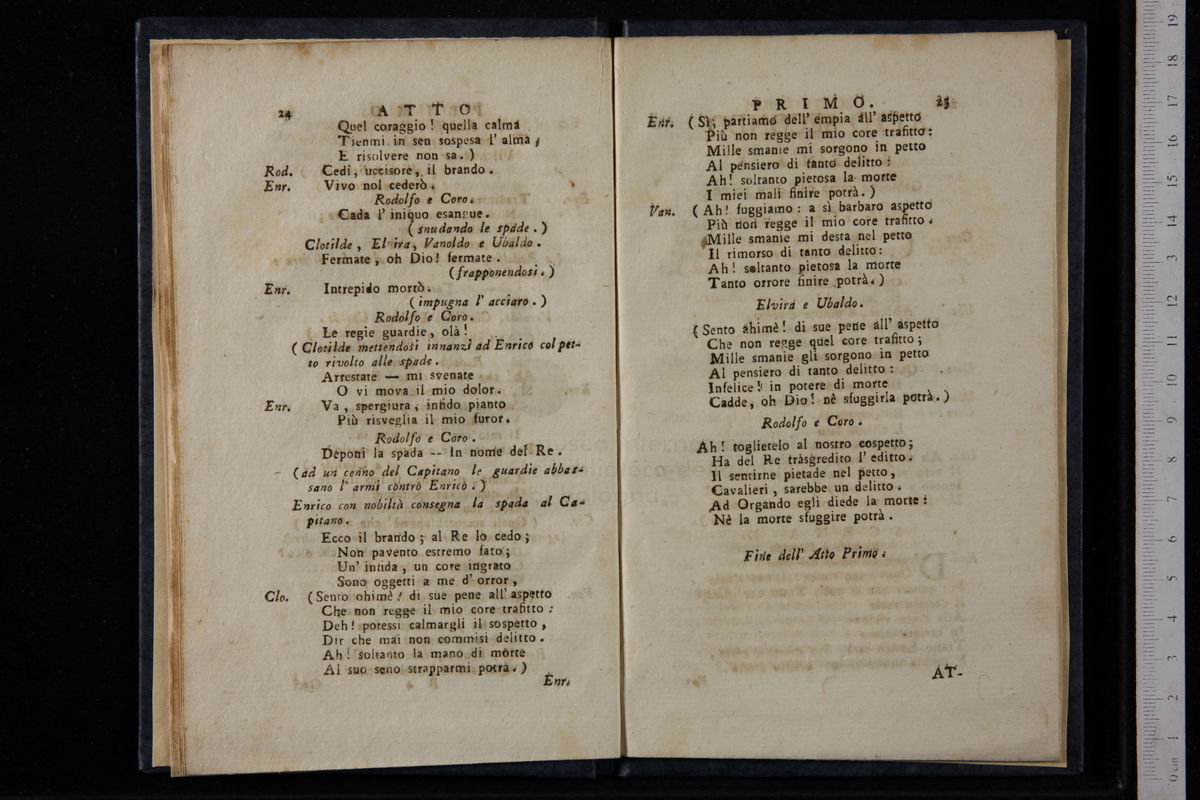 24 ATTO
Quel coraggio! quella calma
Tienmi in sen sospesa l' alma,
E risolvere non sa.)
Rod. Cedi, uccisore, il brando.
Enr. Vivo nol cederò.
Rodolfo e Coro.
Cada l' iniquo esangue.
(snudando le spade.)
Clotilde, Elvira, Vanoldo e Ubaldo.
Fermate, oh Dio! fermate.
(frapponendosi.)
Enr. Intrepido mortò.
(impugna l' acciaro.)
Rodolfo e Coro.
Le regie guardie, olà!
(Clotilde mettendosi innanzi ad Enrico col pet-
to rivolto alle spade.
Arrestate — mi svenate
O vi mova il mio dolor.
Enr. Va, spergiura, infido pianto
Più risveglia il mio furor.
Rodolfo e Coro.
Deponi la spada -- In nome del Re.
(ad un cenno del Capitano le guardie abbas-
sano l' armi contro Enrico.)
Enrico con nobiltà consegna la spada al Ca-
pitano.
Ecco il brando; al Re lo cedo;
Non pavento estremo fato;
Un' infida, un core ingrato
Sono oggetti a me d' orror,
Clo. (Sento ohimè! di sue pene all' aspetto
Che non regge il mio core trafitto:
Deh! potessi calmargli il sospetto,
Dir che mai non commisi delitto.
Ah! soltanto la mano di morte
Al suo seno strapparmi potrà.)
Enr.
PRIMO. 25
Enr. (Sì, partiamo dell' empia all' aspetto
Più non regge il mio core trafitto:
Mille smanie mi sorgono in petto
Al pensiero di tanto delitto:
Ah! soltanto pietosa la morte
I miei mali finire potrà.)
Van. (Ah! fuggiamo: a sì barbaro aspetto
Più non regge il mio core trafitto.
Mille smanie mi desta nel petto
Il rimorso di tanto delitto:
Ah! soltanto pietosa la morte
Tanto orrore finire potrà.)
Elvira e Ubaldo.
(Sento ahimè! di sue pene all' aspetto
Che non regge quel core trafitto;
Mille smanie gli sorgono in petto
Al pensiero di tanto delitto:
Infelice! in potere di morte
Cadde, oh Dio! nè sfuggirla potrà.)
Rodolfo e Coro.
Ah! toglietelo al nostro cospetto;
Ha del Re trasgredito l' editto.
Il sentirne pietade nel petto,
Cavalieri, sarebbe un delitto.
Ad Orgando egli diede la morte:
Nè la morte sfuggire potrà.
Fine dell' Atto Primo.
AT-
0 cm 1 2 3 4 5 6 7 8 9 10 11 12 13 14 15 16 17 18 19